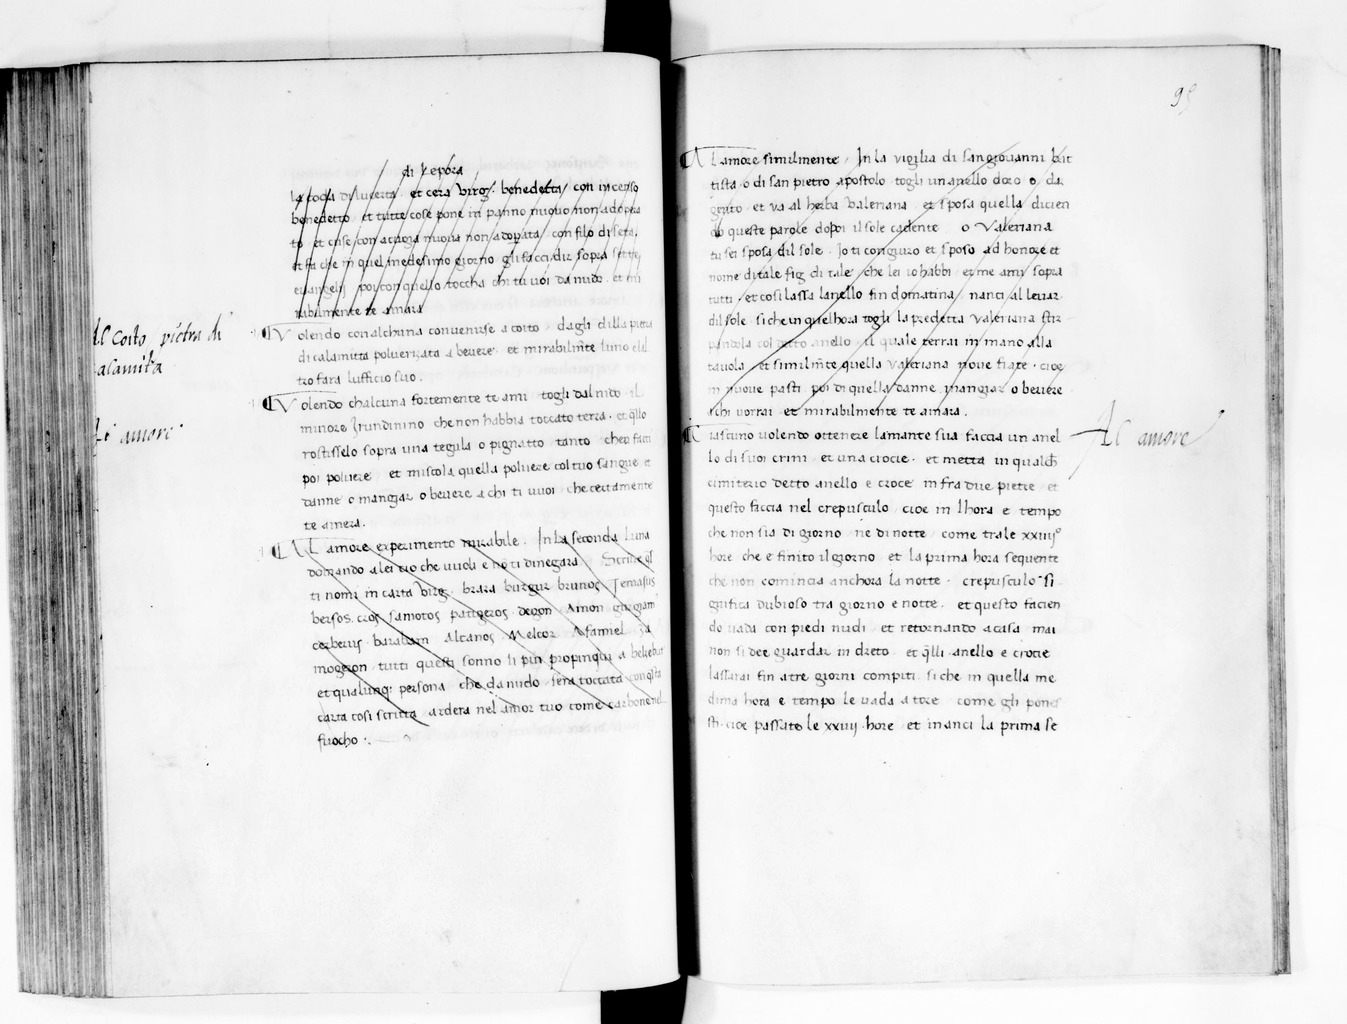 di Lepora
la coda di lucerta · et cera virg. benedetta, con incenso
benedetto et tutte cose pone in panno nuouo non adopera
to et cuse con acugia nuoua non adopata con filo di seta,
et fa che in quel medesimo giorno gli facci dir sopra sette
euangelij poi con quello toccha chi tu uoi da nudo · et mi
rabilmente te amara
Al Coito pietra di
calamita
Volendo con alchuna conuenirse a coito dagli dilla pietra
di calamita poluerizata a beuere · et mirabilmte luno e lal
tro fara lufficio suo ·
Al amore
Volendo chalcuna fortemente te ami togli dal nido il
minore Irundinino che non habbia toccato terra · et qllo
rostisselo sopra una tegula o pignatto tanto che facci
poi poluere et miscola quella poluere col tuo sangue et
danne o mangiar o beuere a chi ti uuoi che certamente
te amera.
Al amore experimento mirabile · In la seconda luna
domando a lei cio che uuoli e no ti dinegara Scriue qs
ti nomi in carta virg. brara burgur brunos Temasus
bersos. cros samotos patigeros degon Amon gurgiam
cerberus barabam Alcanos Melcor Asamiel za
mogeron tutti questi sonno li piu propinqui a belzebut
et qualunq; persona che da nudo sera toccata con qsta
carta cosi scritta ardera nel amor tuo come carbone nel
fuocho ·
95
Al amore similmente · In la vigilia di san giouanni bat
tista o di san pietro apostolo togli un anello doro o da
gento et va al herba Valeriana et sposa quella dicen
do queste parole dopoi il sole cadente o Valeriana
tu sei sposa dil sole · Io ti coniguro et sposo ad honore et
nome di tale fig. di tale che lei io habbi et me ami sopra
tutti · et cosi lassa lanello fin domatina nanci al leuar
dil sole si che in quelhora togli la predetta valeriana stir
pandola col detto anello il quale terrai in mano alla
tauola et similmte quella valeriana noue fiate · cioe
in nuoue pasti poi di quella danne mangiar o beuere
a chi uorrai et mirabilmente te amara ·
Al amore
Ciascuno uolendo ottenere lamante sua faccia un anel
lo di suoi crini et una crocie · et metta in qualch
cimiterio detto anello e croce infra due pietre et
questo faccia nel crepusculo cioe in lhora e tempo
che non sia di giorno ne di notte come tra le xxiiij
hore che e finito il giorno et la prima hora sequente
che non comincia anchora la notte · crepusculo si
gnifica dubioso tra giorno e notte · et questo facien
do uada con piedi nudi et retornando a casa mai
non si dee guardar in dreto et qlli anello e crocie
lassarai fin a tre giorni compiti si che in quella me
dima hora e tempo le uada a tore come gli pones
sti · cioe passato le xxiiij hore et inanci la prima se